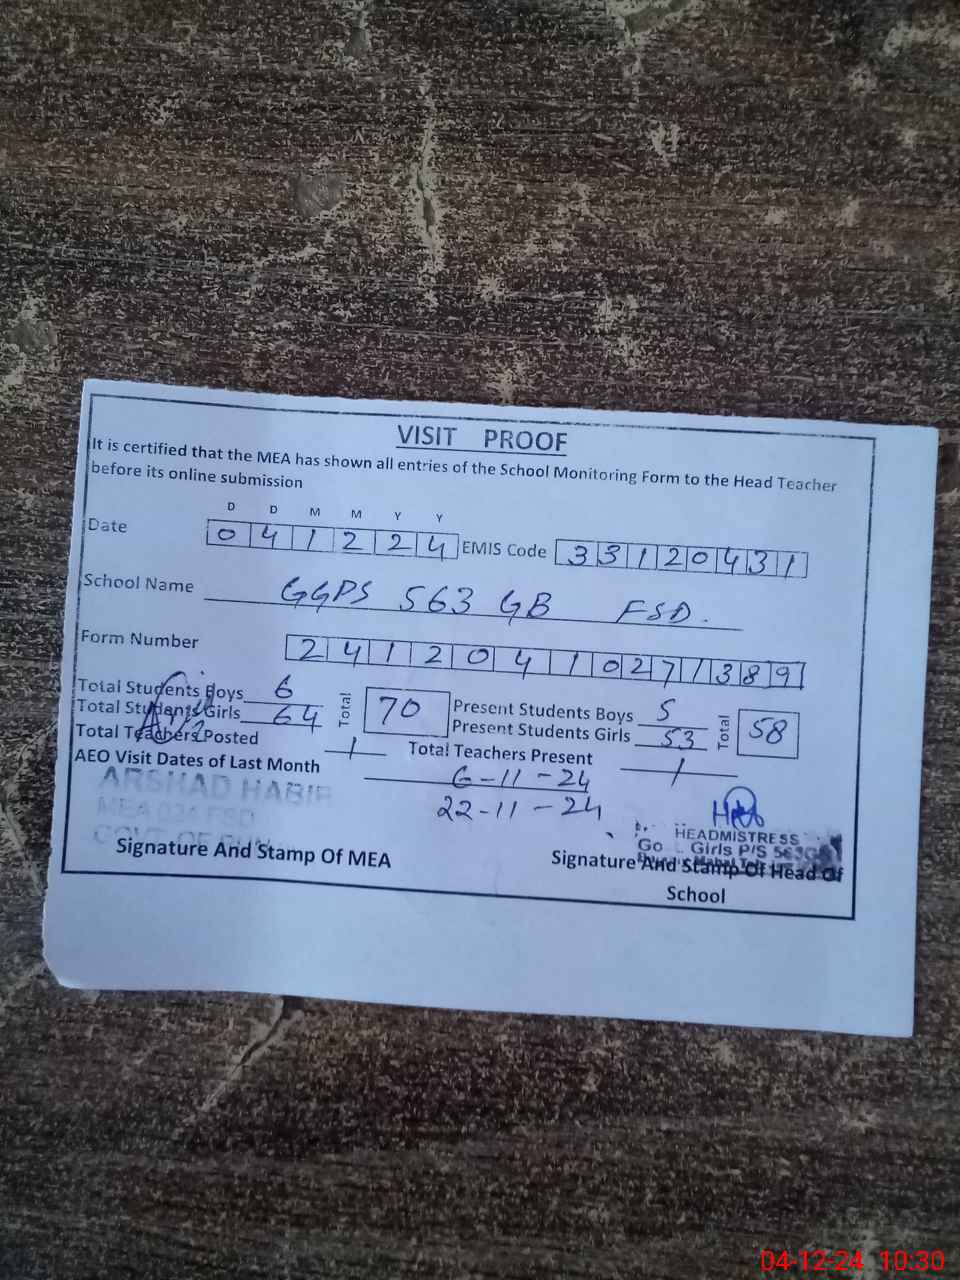 VISIT PROOF
It is certified that the MEA has shown all entries of the School Monitoring Form to the Head Teacher
before its online submission
D D M M Y Y
Date 0 4 1 2 2 4 EMIS Code 3 3 1 2 0 4 3 1
School Name GGPS 563 GB FSD.
Form Number 2 4 1 2 0 4 1 0 2 7 1 3 8 9
Total Students Boys 6 Total 70 Present Students Boys 5 Total 58
Total Students Girls 64 Present Students Girls 53
Total Teachers Posted 1 Total Teachers Present 1
AEO Visit Dates of Last Month 6-11-24
22-11-24
ARSHAD HABIB
MEA 024 FSD
GOVT. OF PUN
HEADMISTRESS
Girls P/S 563G
Signature And Stamp Of MEA Signature And Stamp Of Head Of
School
04-12-24 10:30